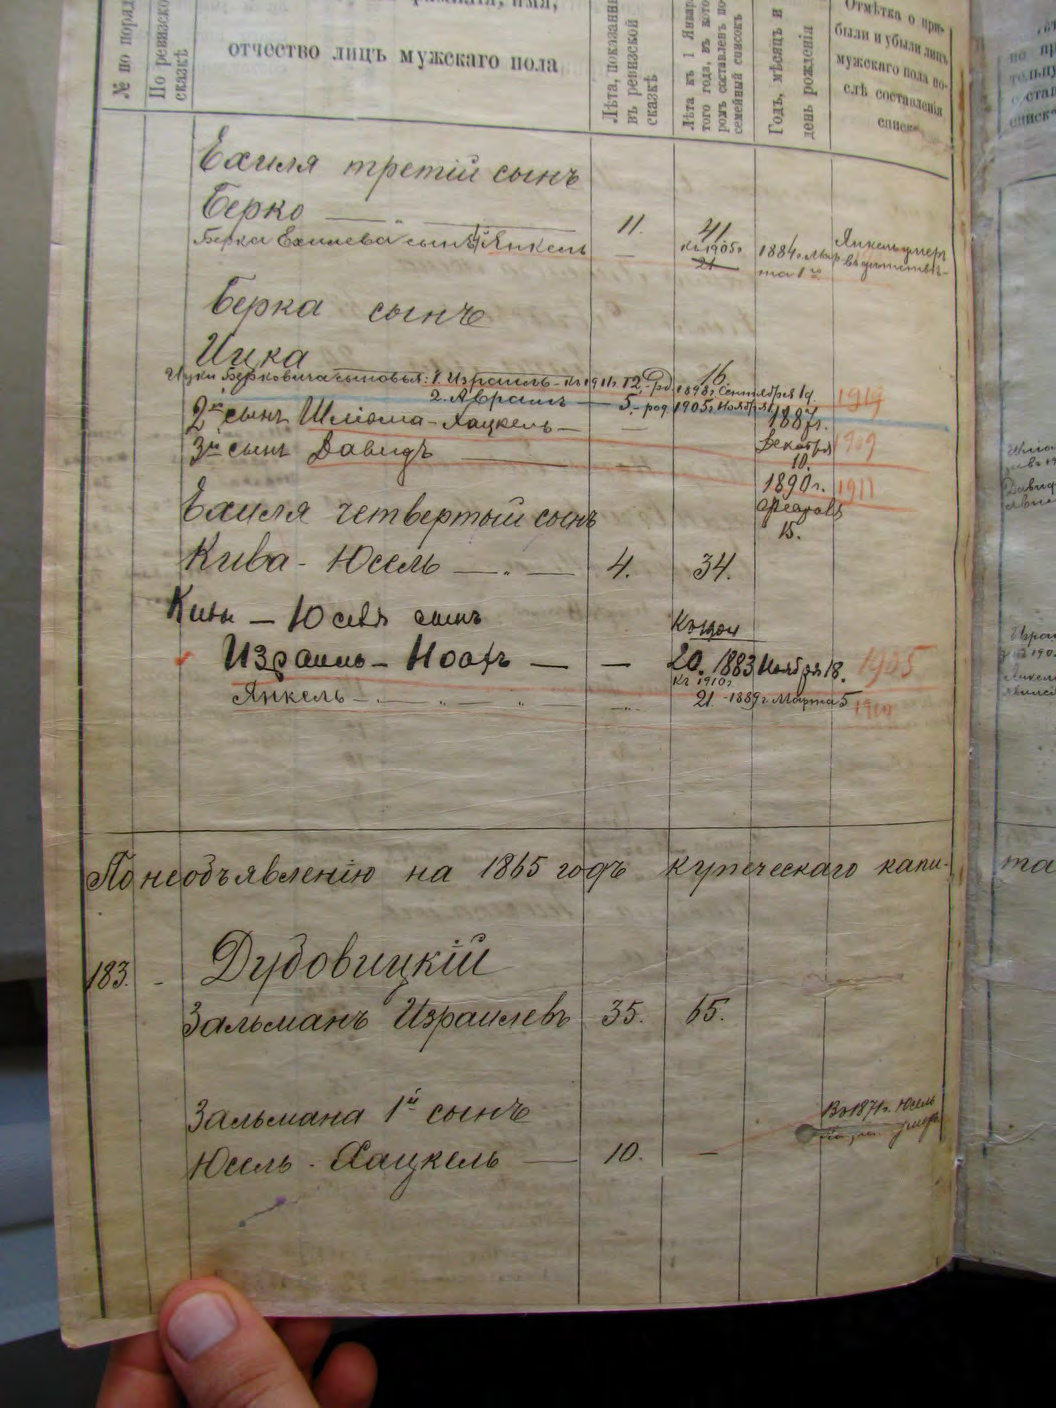 № по порядку
По ревизской сказкѣ
фамилія, имя,
отчество лицъ мужскаго пола
Лѣта, показанныя въ ревизской сказкѣ
Лѣта къ 1 Января того года, въ которомъ составленъ посемейный списокъ
Годъ, мѣсяцъ и день рожденія
Отмѣтка о прибыли и убыли лицъ мужскаго пола послѣ составленія списка
Ехиля третій сынъ
Берко — " — 11. 41.
Берка Ехилева сынъ Янкель — къ 1905г 21 1884г. Мар-та 1го Янкель умеръ въ дѣтствѣ
Берка сынъ
Ицка 16.
Ицки Берковича сыновья: 1. Израиль - къ 1911г. 12. - Род. 1898г. Сентября 19. 1919
2. Авраамъ — 5. - род. 1905г. Ноября
2й сынъ Шліома - Хацкель — — 1887г. Декабря 10. 1909
3й сынъ Давидъ — — 1890г. Февраля 15. 1911
Ехиля четвертый сынъ
Кива - Юсель — " — 4. 34.
Кивы — Юселя сынъ
Израиль - Ноахъ — — 20. 1883 Ноября 18. 1905
Янкель — " — къ 1910г 21 - 1889г. Марта 5 1910
По необъявленію на 1865 годъ купеческаго капи-
та
183. - Дубовицкій
Зальманъ Израилевъ 35. 65.
Зальмана 1й сынъ
Въ 1871г. Юсель
умеръ
Юсель - Хацкель — 10. —